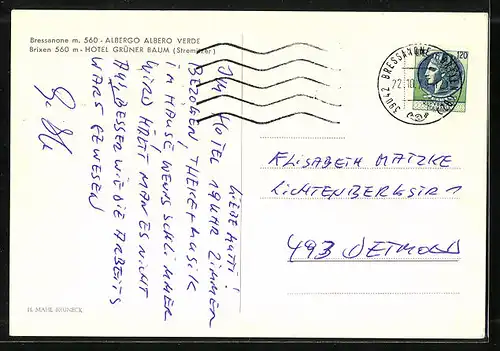 Bressanone m. 560 - ALBERGO ALBERO VERDE
Brixen 560 m - HOTEL GRÜNER BAUM (Stremitzer)
LIEBE MUTTI!
IM HOTEL 19 UHR ZIMMER
BEZOGEN, THEKE MUSIK
IM HAUSE WENNS SCHLIMMER
WIRD HÄLT MAN ES NICHT
AUS, BESSER WIE DIE ARBEIT
WARS GEWESEN
120
39042 BRESSANONE
ELISABETH MATZKE
LICHTENBERGSTR 1
493 DETMOLD
H. MAHL BRUNECK